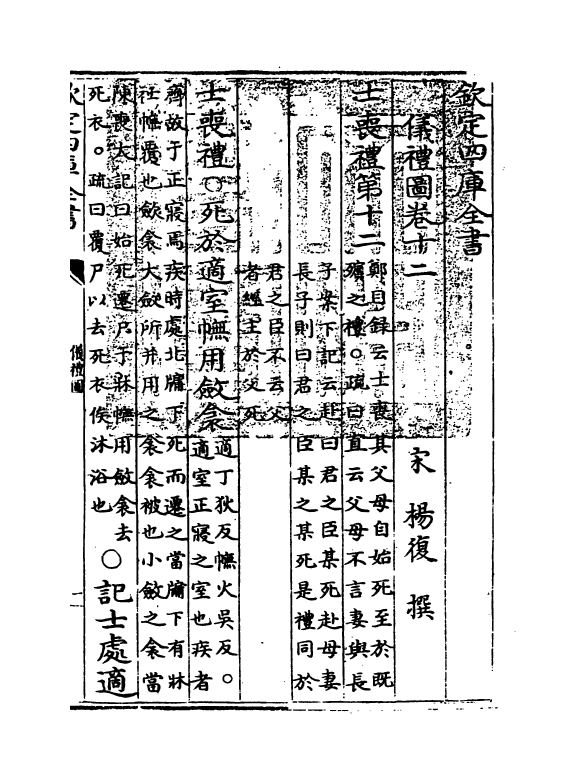 欽定四庫全書
儀禮圖卷十二
宋 楊復 撰
士喪禮第十二
鄭目録云士喪其父母自始死至於既
殯之禮。疏曰直云父母不言妻與長
子案下記云赴曰君之臣某死赴母妻
長子則曰君之臣某之某死是禮同於
君之臣不云父
者經主於父死
士喪禮○死於適室幠用斂衾
適丁狄反幠火吳反。
適室正寢之室也疾者
齊故于正寢焉疾時處北牖下死而遷之當牖下有牀
衽幠覆也斂衾大斂所并用之衾衾被也小斂之衾當
陳喪大記曰始死遷尸于牀幠用斂衾去
死衣。疏曰覆尸以去死衣俟沐浴也
○記士處適
欽定四庫全書
儀禮圖
一